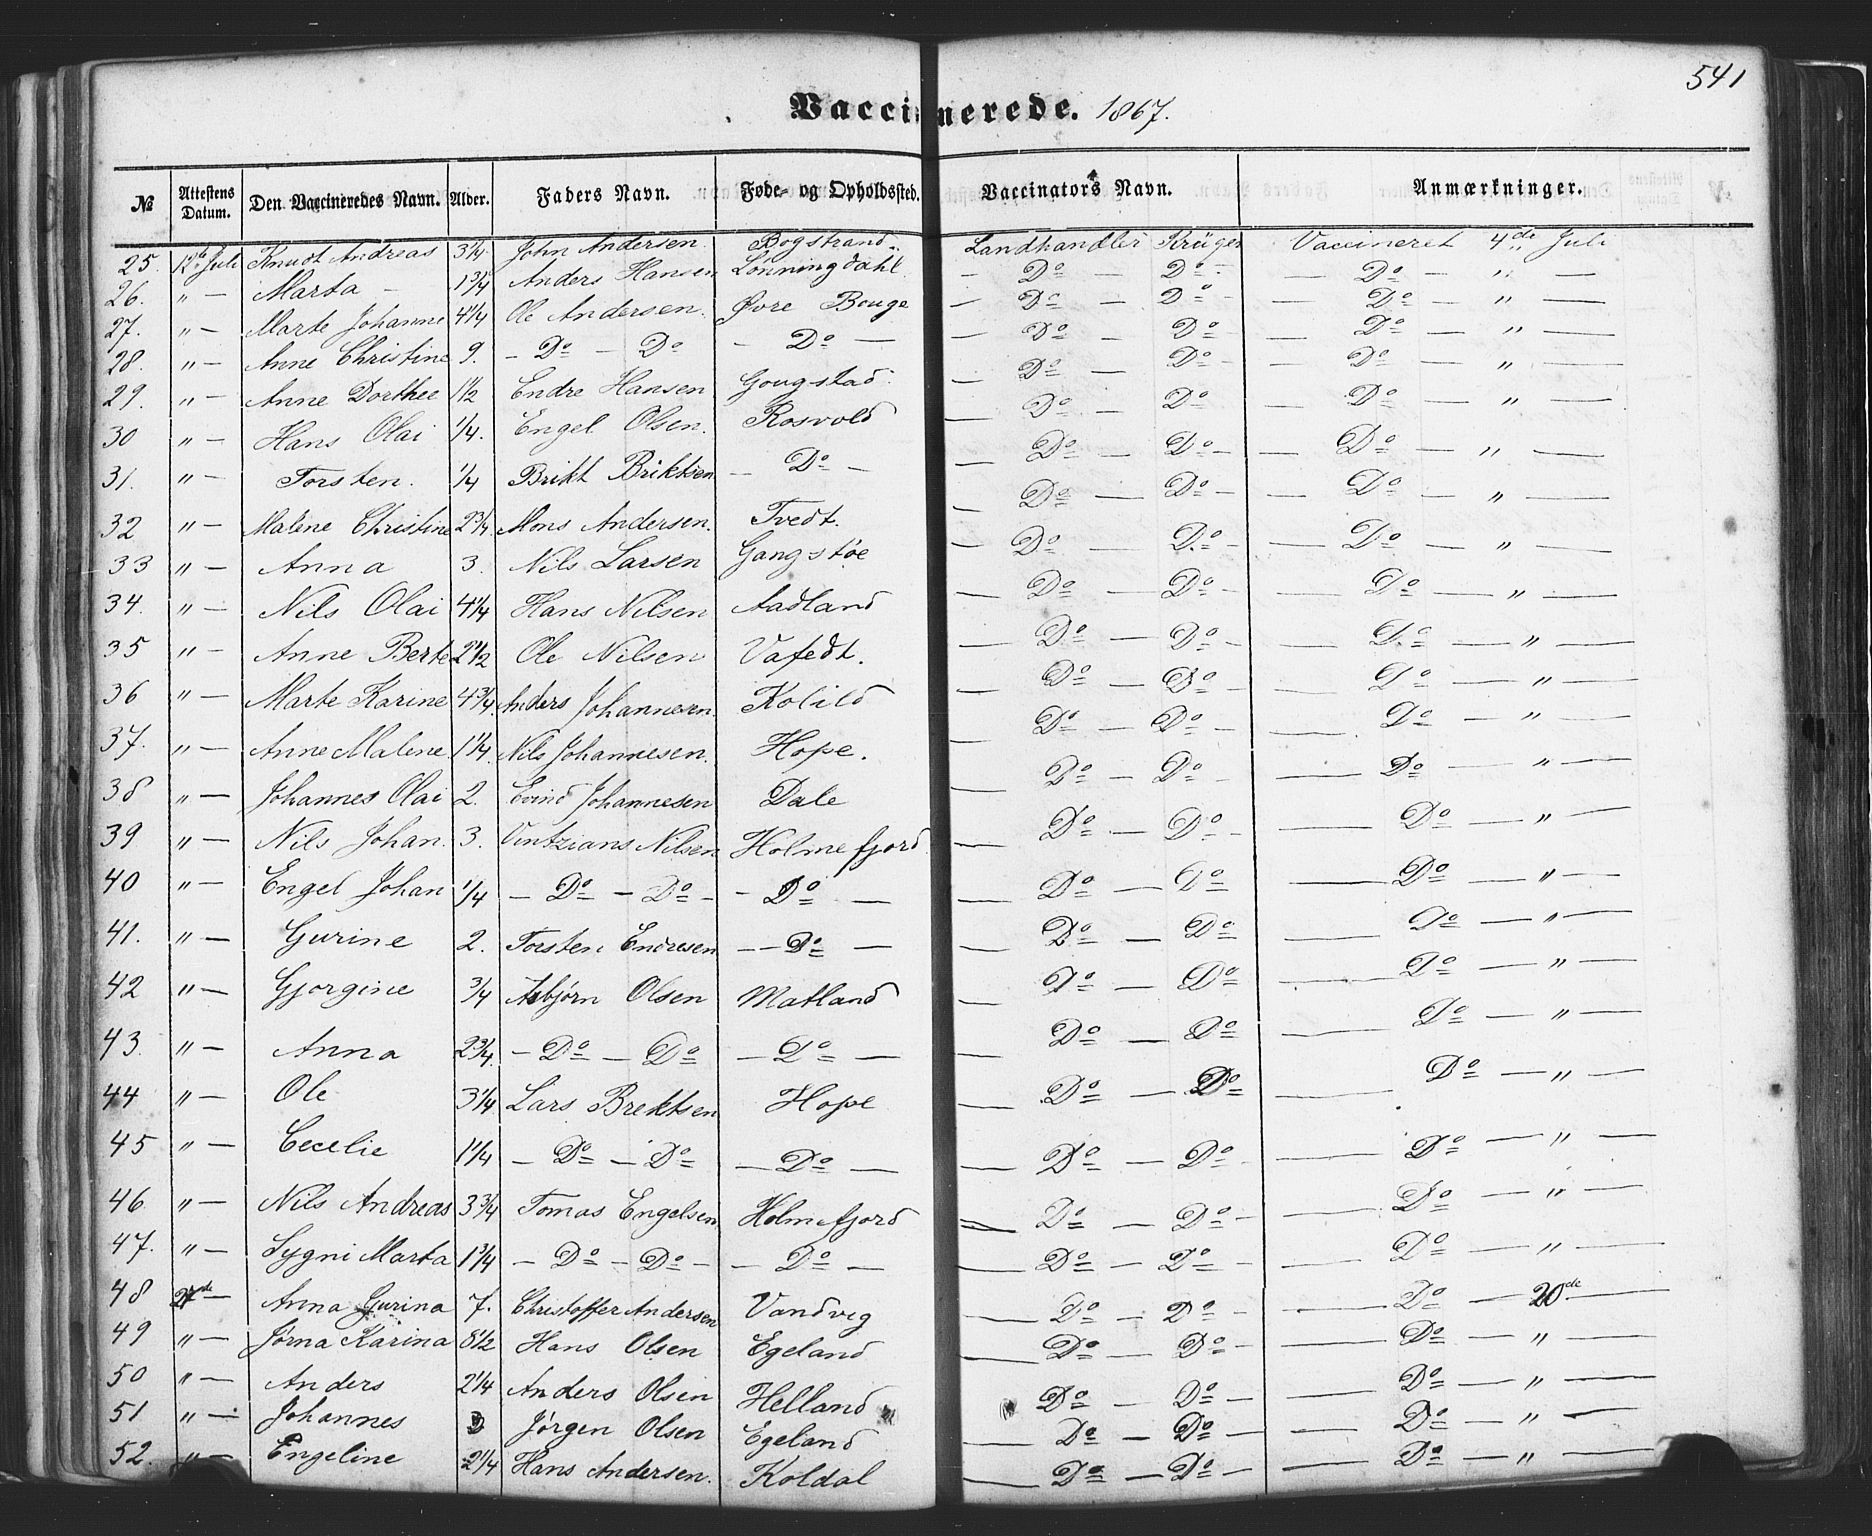 541
Vaccinerede. 1867.
№ Attestens Datum. Den Vaccineredes Navn. Alder. Faders Navn. Føde- og Opholdssted. Vaccinators Navn. Anmærkninger.
25. 12te Juli Knudt Andreas 3 1/4 John Andersen. Bogstrand. Landhandler Krüger Vaccineret 4de Juli
26. " — Marta — 1 3/4 Anders Hansen Lønningdahl — Do — Do — — Do — " —
27. " — Marte Johanne 4 1/4 Ole Andersen. Øvre Bouge — Do — Do — — Do — " —
28. " — Anne Christine 9. — Do — Do — Do — — Do Do — Do — " —
29. " — Anne Dorthee 1 1/2 Endre Hansen Gougstad. — Do — Do — — Do — " —
30 " — Hans Olai 1/4. Engel Olsen. Rosvold — Do — Do — — Do — " —
31. " — Torsten. 1/4 Brikt Briktsen — Do — — Do — Do — — Do — " —
32 " — Malene Christine 2 3/4 Mons Andersen. Tvedt. — Do — Do — — Do — " —
33 " — Anna 3. Nils Larsen Gangstøe — Do — Do — — Do — " —
34. " — Nils Olai 4 1/4 Hans Nilsen Aadland — Do — Do — — Do — " —
35 " — Anne Berte 2 1/2 Ole Nilsen Vafedt. — Do — Do — — Do — " —
36 " — Marte Karine 4 3/4. Anders Johannesen. Kolild — Do — Do — — Do — " —
37. " — Anne Malene 1 1/4. Nils Johannesen. Hope. — Do — Do — — Do — " —
38 " — Johannes Olai 2. Evind Johannesen Dale — Do — Do — — Do — " —
39 " — Nils Johan. 3. Vintzians Nilsen Holmefjord — Do — Do — — Do — " —
40 " — Engel Johan 1/4 — Do — Do — — Do — — Do — Do — Do — " —
41. " — Gurine 2. Torsten Endresen — Do — — Do — Do — Do — " —
42 " — Gjorgine 3/4 Asbjørn Olsen Matland — Do — Do — Do — " —
43. " — Anna 2 3/4. — Do — Do — Do — — Do — Do — Do — " —
44 " — Ole 3 1/4 Lars Brektsen Hope — Do — Do — Do — " —
45 " — Cecelie 1 1/4 — Do — Do — Do — — Do — Do — — Do — " —
46 " — Nils Andreas 3 3/4 Tomas Engelsen Holmefjord — Do — Do — — Do — " —
47. " — Sygni Marta 1 3/4 — Do — Do — — Do — — Do — Do — — Do — " —
48 27de — Anna Gurina 7. Christoffer Andersen Vandvig — Do — Do — — Do — 20de —
49 " — Jørna Karina 8 1/2 Hans Olsen Egeland — Do — Do — — Do — " —
50 " — Anders 2 1/4 Anders Olsen Helland — Do — Do — — Do — " —
51 " — Johannes Jørgen Olsen Egeland — Do — Do — — Do — " —
52. " — Engeline 2 1/4 Hans Andersen. Koldal — Do — Do — — Do — " —